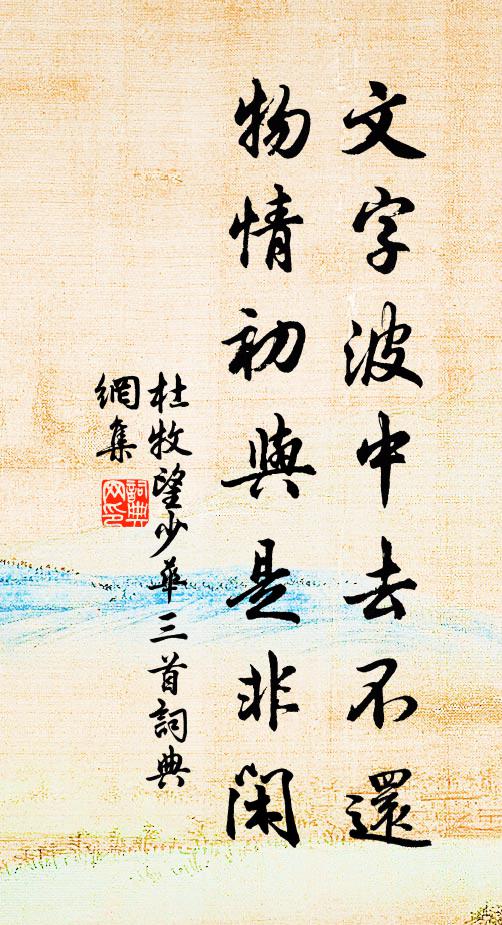 文字波中去不還
物情初與是非閑
杜牧望少華三首詞典
網集
詞典
网印